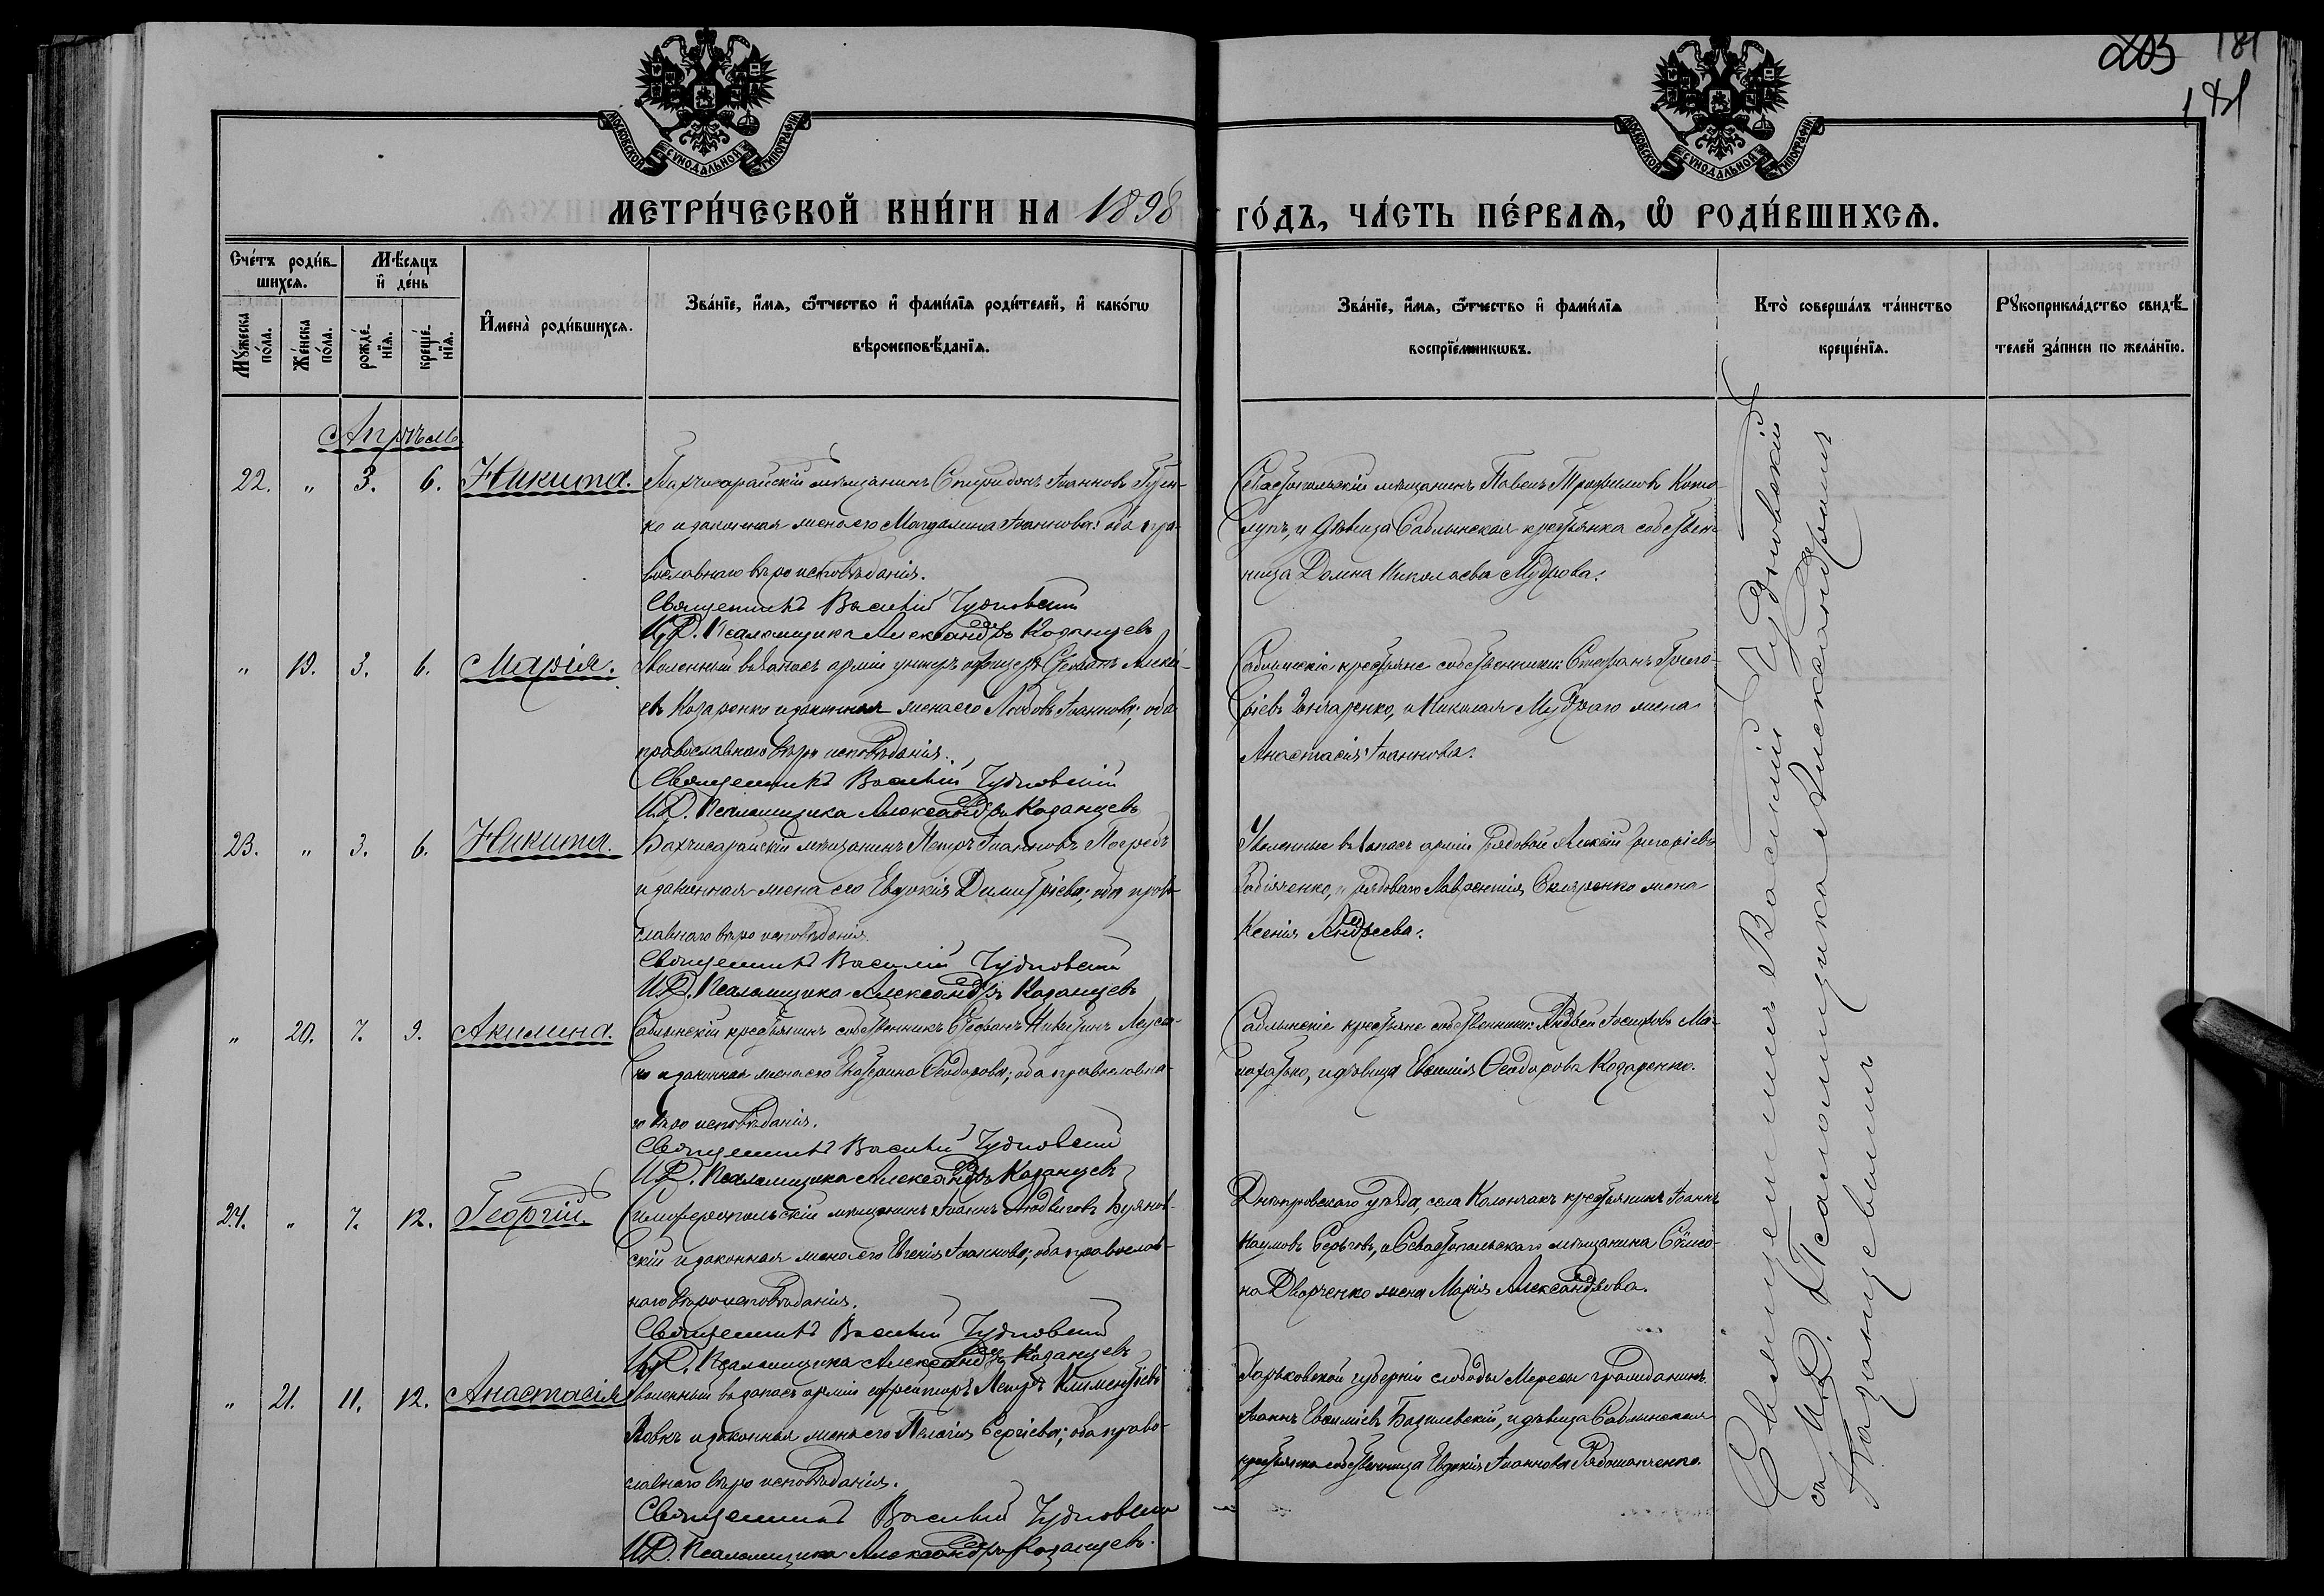 203 181
181
МОСКОВСКОЙ СѴНОДАЛЬНОЙ ТИПОГРАФІИ
МОСКОВСКОЙ СѴНОДАЛЬНОЙ ТИПОГРАФІИ
МЕТРИ́ЧЕСКОЙ КНИ́ГИ НА 1898 ГО́ДЪ, ЧА́СТЬ ПЕ́РВАѦ, Ѽ РОДИ́ВШИХСѦ.
Сче́тъ роди́в-
шихсѧ.
Мѣ́сѧцъ
и҆ де́нь
Мꙋ́жеска по́ла.
Же́нска по́ла.
рожде́нїѧ.
креще́нїѧ.
И҆мена̀ роди́вшихсѧ.
Зва́нїе, и҆́мѧ, ѻ҆́тчество и҆ фами́лїѧ роди́телей, и҆ како́гѡ
вѣроисповѣ́данїѧ.
Зва́нїе, и҆́мѧ, ѻ҆́тчество и҆ фами́лїѧ
воспрїе́мникѡвъ.
Кто̀ соверша́лъ та́инство
креще́нїѧ.
Рꙋкоприкла́дство свидѣ́-
телей за́писи по жела́нїю.
Апрѣль
22. " 3. 6. Никита.
Бахчисарайскій мѣщанинъ Спиридонъ Іоанновъ Гуен-
ко и законная жена его Магдалина Іоаннова; оба пра-
вославнаго вѣроисповѣданія.
Священникъ Василій Чудновскій
И.Д. Псаломщика Александръ Казанцевъ
Севастопольскій мѣщанинъ Павелъ Трофимовъ Кото-
лупъ, и дѣвица Саблынская крестьянка собствен-
ница Домна Николаева Мудрова.
" 19. 3. 6. Марія.
Уволенный въ запасъ арміи унтеръ офицеръ Стефанъ Алексѣ-
евъ Козаренко и законная жена его Любовь Іоаннова; оба
православнаго вѣроисповѣданія.
Священникъ Василій Чудновскій
И.Д. Псаломщика Александръ Казанцевъ
Саблынскіе крестьяне собственники: Стефанъ Григо-
ріевъ Гончаренко, и Николая Мудраго жена
Анастасія Іоаннова.
23. " 3. 6. Никита.
Бахчисарайскій мѣщанинъ Петръ Іоанновъ Погребъ
и законная жена его Евдокія Димитріева; оба право-
славнаго вѣроисповѣданія.
Священникъ Василій Чудновскій
И.Д. Псаломщика Александръ Казанцевъ
Уволенные въ запасъ арміи рядовой Алексій Григоріевъ
и рядоваго Лаврентія Скляренко жена
Ксенія Андреева.
" 20. 7. 9. Акилина.
Саблынскій крестьянинъ собственникъ Стефанъ Никитинъ
и законная жена его Екатерина Ѳеодорова; оба православна-
го вѣроисповѣданія.
Священникъ Василій Чудновскій
И.Д. Псаломщика Александръ Казанцевъ
Саблынскіе крестьяне собственники: Андрей Іосифовъ
и дѣвица Евфимія Ѳеодорова Козаренко.
24. " 7. 12. Георгій.
Симферопольскій мѣщанинъ Іоаннъ Людвиговъ Буянов-
скій и законная жена его Евгенія Іоаннова; оба православ-
наго вѣроисповѣданія.
Священникъ Василій Чудновскій
И.Д. Псаломщика Александръ Казанцевъ
Днѣпровскаго уѣзда, села Колончакъ крестьянинъ Іоаннъ
Наумовъ Серыговъ, и Севастопольскаго мѣщанина Сѵмео-
на Дворченко жена Марія Александрова.
" 21. 11. 12. Анастасія
Уволенный въ запасъ арміи ефрейторъ Петръ Климентіевъ
Вовкъ и законная жена его Пелагія Сергіева; оба право-
славнаго вѣроисповѣданія.
Священникъ Василій Чудновскій
И.Д. Псаломщика Александръ Казанцевъ.
Харьковской губерніи слободы Мерефы гражданинъ
Іоаннъ Евфиміевъ Базилевскій, и дѣвица Саблынская
крестьянка собственница Евдокія Іоаннова Рядошапченко.
Священникъ Василій Чудновскій
съ И.Д. Псаломщика Александромъ
Казанцевымъ